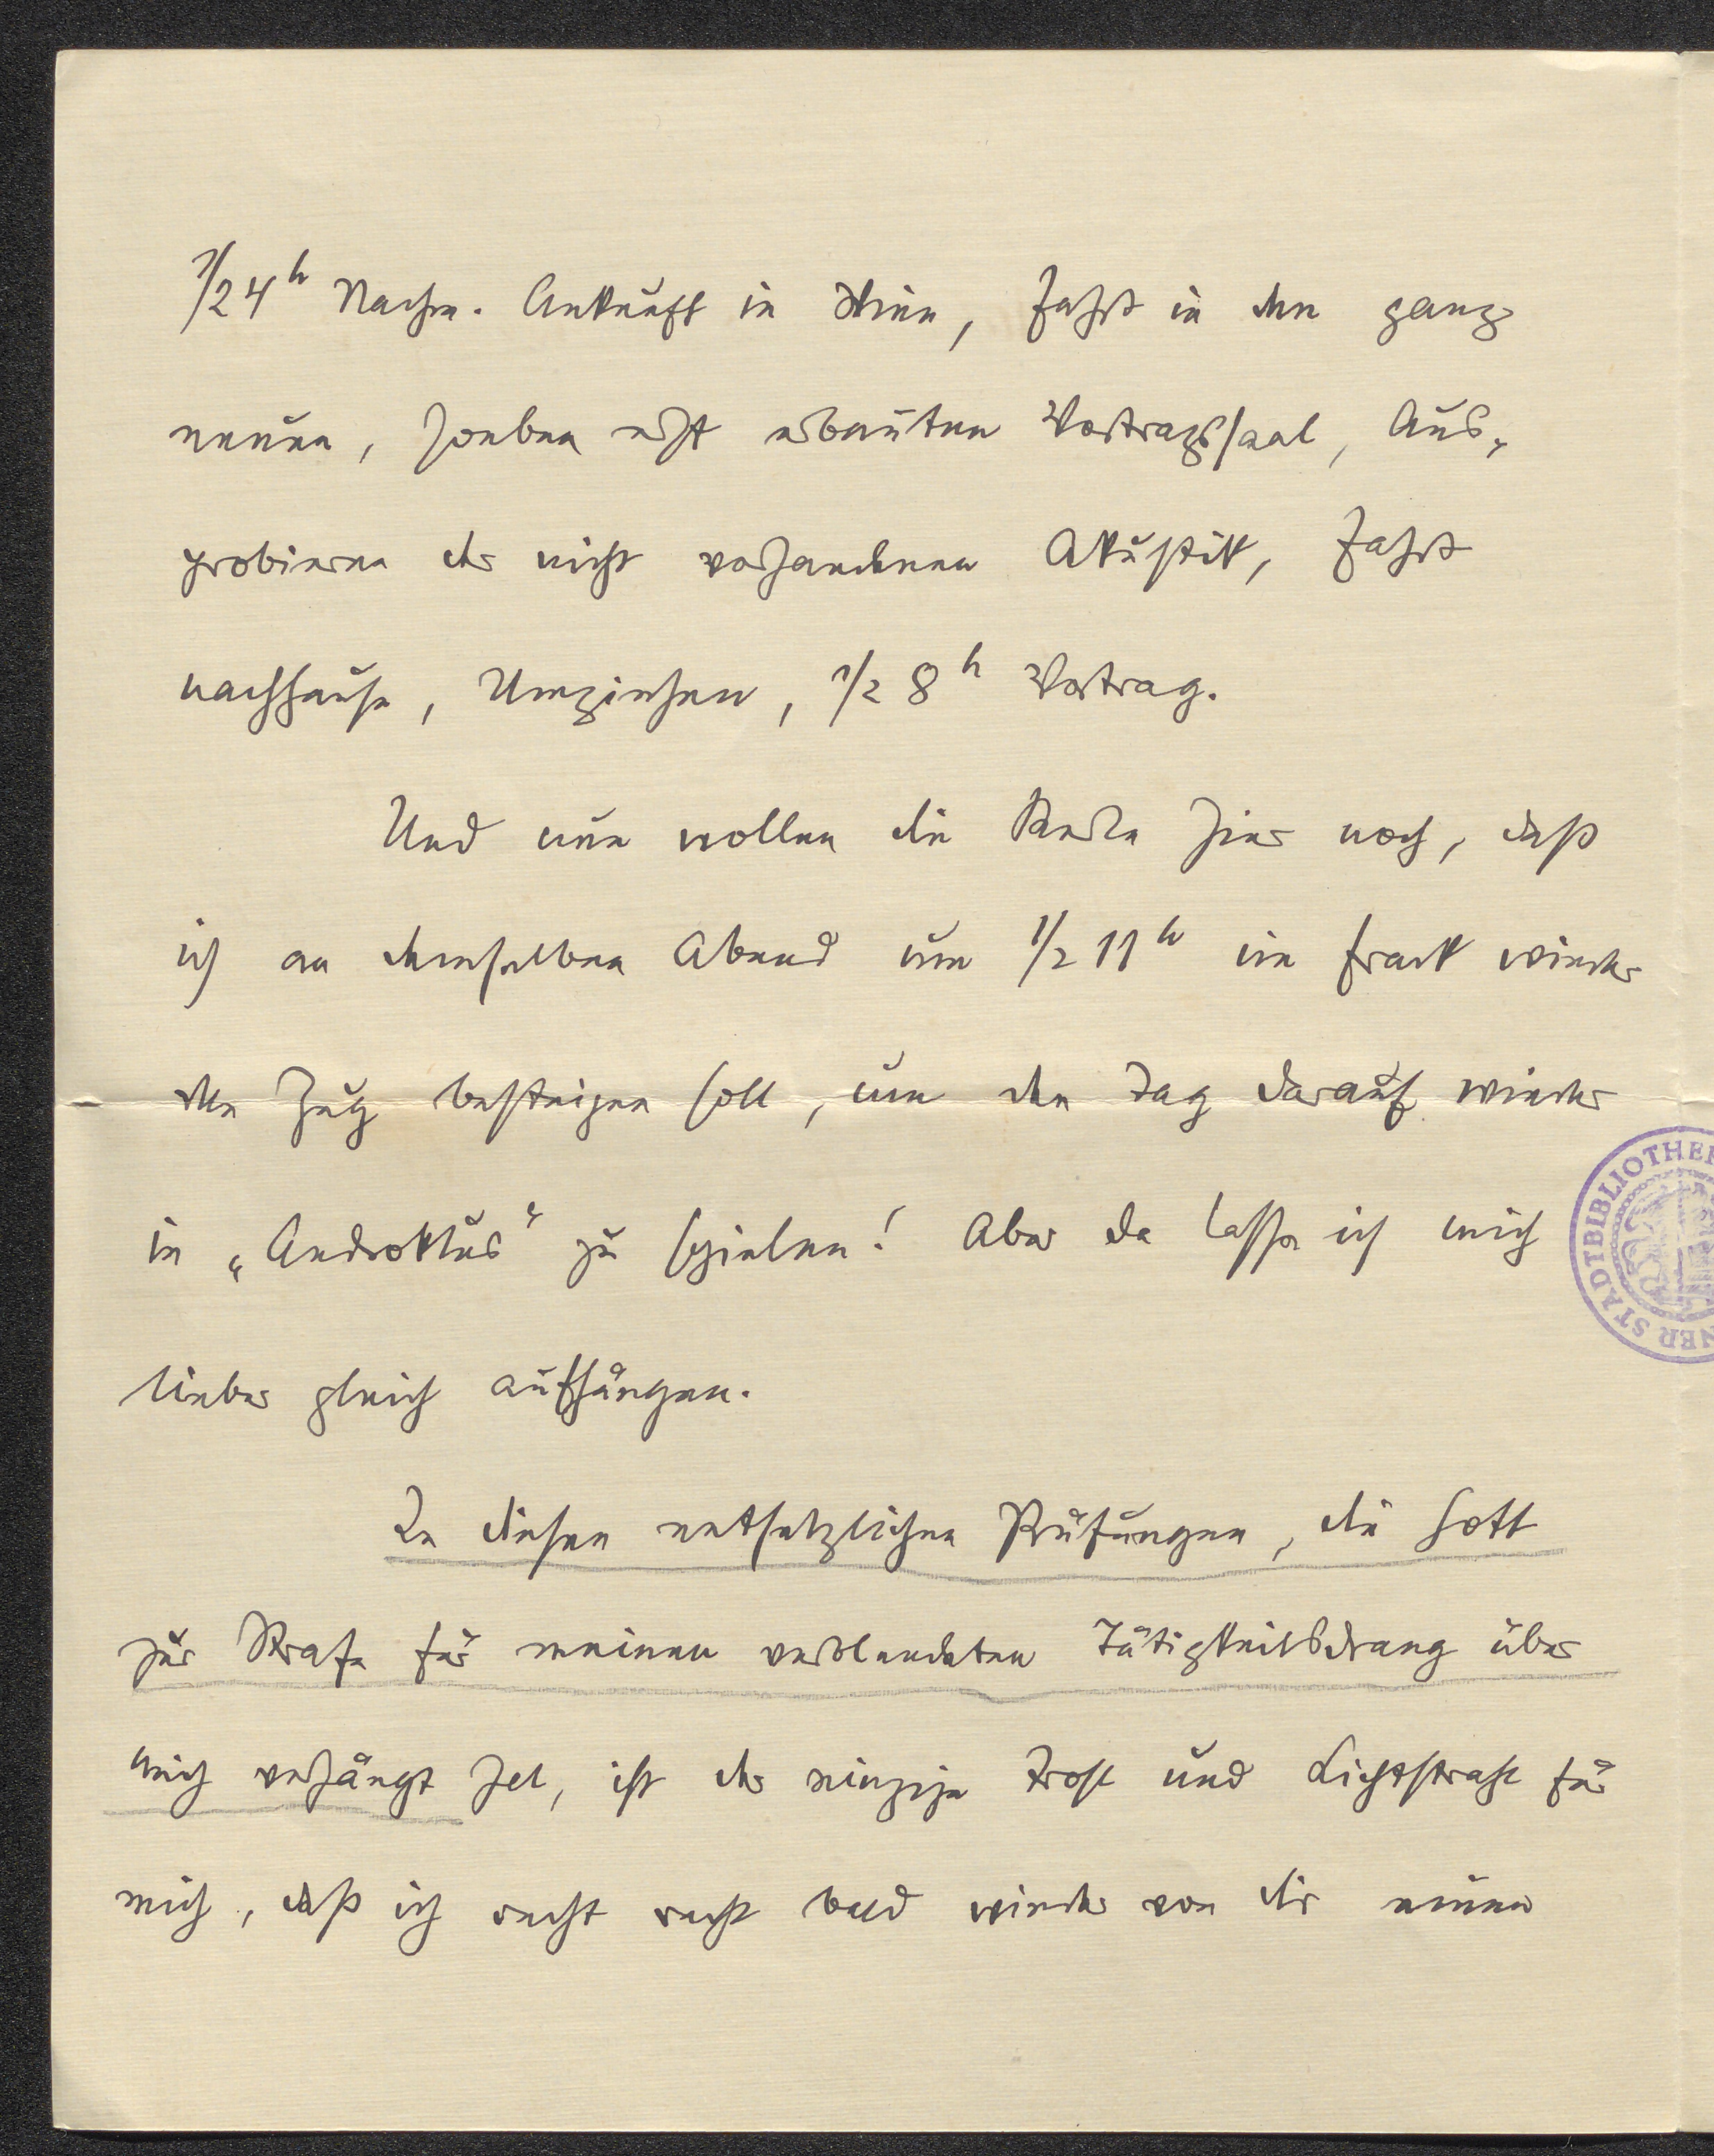 1/2 4h Nachm. Ankunft in Wien, Fahrt in den ganz
neuen, soeben erst erbauten Vortragssaal, Aus-
probieren der nicht vorhandenen Akustik, Fahrt
nachhause, Umziehen, 1/2 8h Vortrag.
Und nun wollen die Kerle hier noch, daß
ich an demselben Abend um 1/2 11h im Frack wieder
den Zug besteigen soll, um den Tag darauf wieder
in „Androklus“ zu spielen! Aber da lasse ich mich
lieber gleich aufhängen.
In diesen entsetzlichen Prüfungen, die Gott
zur Strafe für meinen verblendeten Tätigkeitsdrang über
mich verhängt hat, ist der einzige Trost und Lichtstrahl für
mich, daß ich recht recht bald wieder von dir einen
STADTBIBLIOTHEK